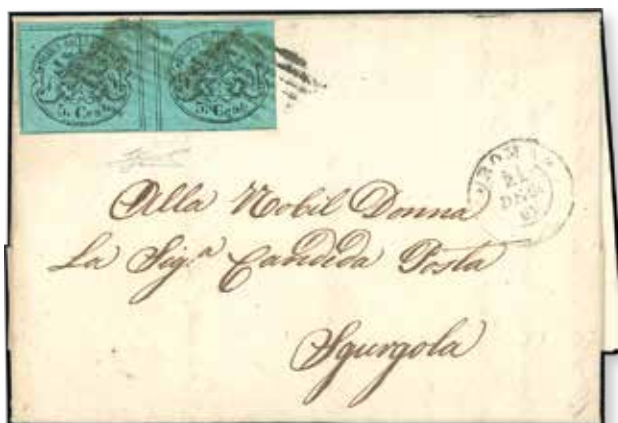 5. Cent 5. Cent
ROMA
21
DIC
Alla Nobil Donna
La Sig.ª Candida Posta
Sgurgola